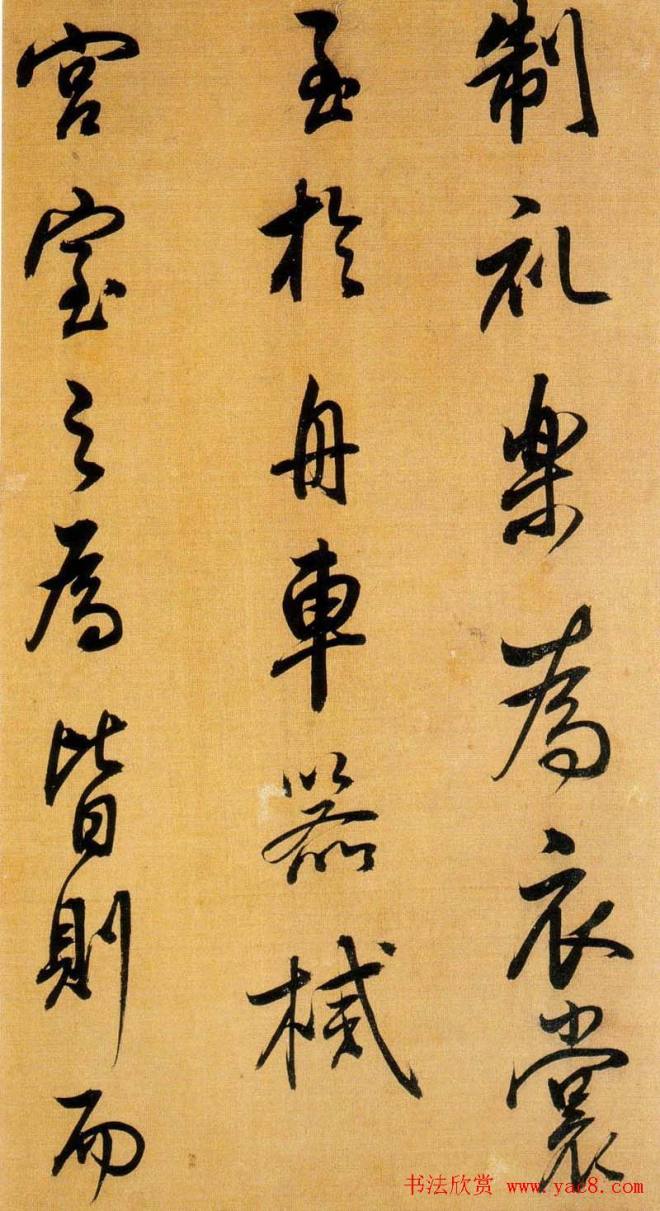 制礼楽為衣裳
至於舟車器械
宮室之為皆則而
书法欣赏 www.yac8.com